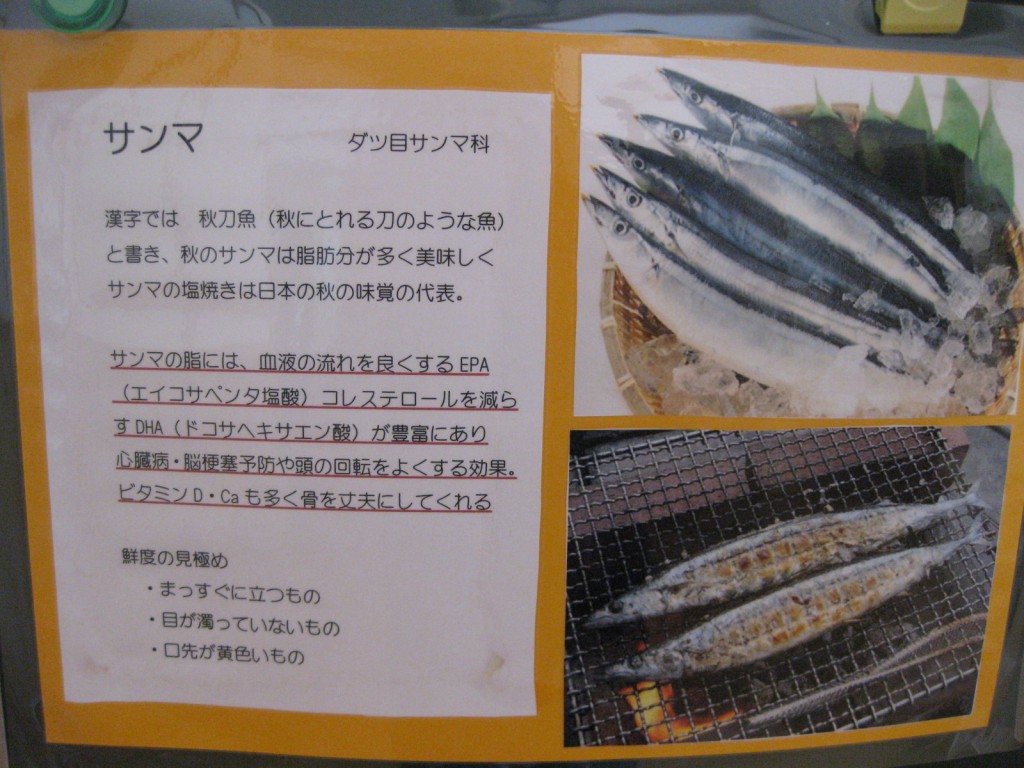 サンマ ダツ目サンマ科
漢字では 秋刀魚（秋にとれる刀のような魚）
と書き、秋のサンマは脂肪分が多く美味しく
サンマの塩焼きは日本の秋の味覚の代表。
サンマの脂には、血液の流れを良くする EPA
（エイコサペンタ塩酸）コレステロールを減ら
す DHA（ドコサヘキサエン酸）が豊富にあり
心臓病・脳梗塞予防や頭の回転をよくする効果。
ビタミン D・Ca も多く骨を丈夫にしてくれる
鮮度の見極め
・まっすぐに立つもの
・目が濁っていないもの
・口先が黄色いもの